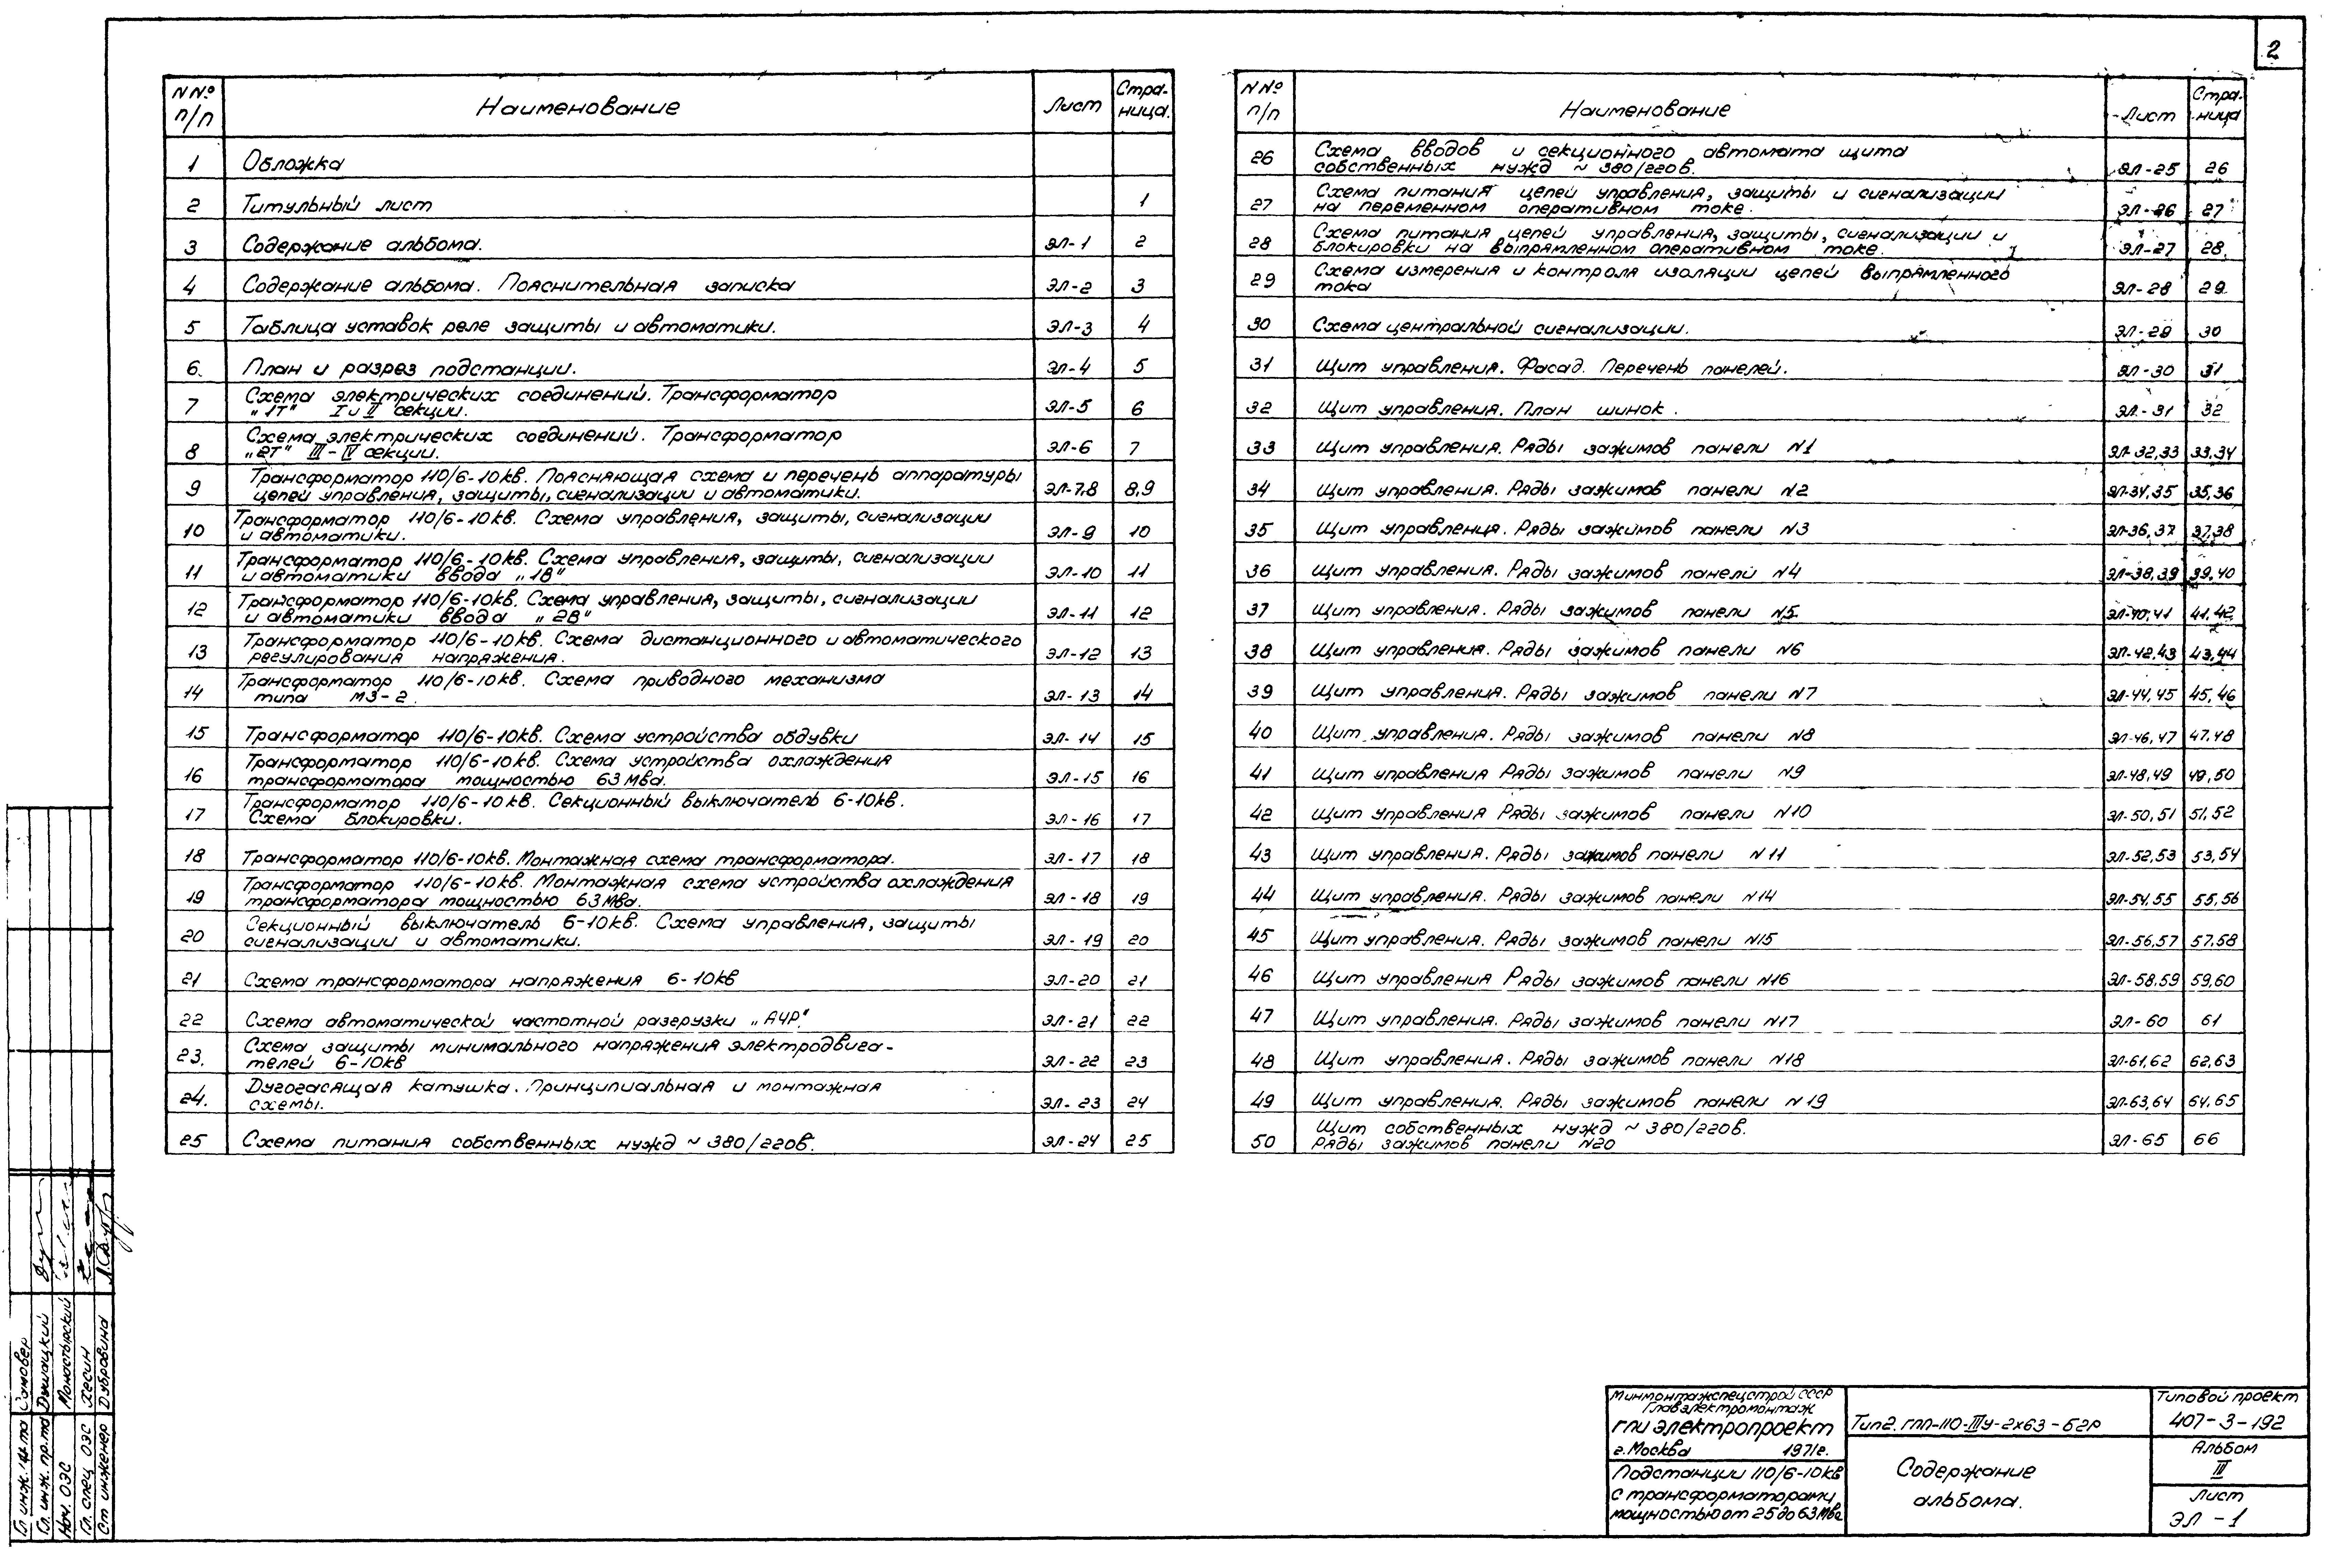 2
NNº п/п Наименование Лист Стра-ница.
1 Обложка
2 Титульный лист 1
3 Содержание альбома. ЭЛ-1 2
4 Содержание альбома. Пояснительная записка ЭЛ-2 3
5 Таблица уставок реле защиты и автоматики. ЭЛ-3 4
6. План и разрез подстанции. ЭЛ-4 5
7 Схема электрических соединений. Трансформатор
„1Т" I и II секции. ЭЛ-5 6
8 Схема электрических соединений. Трансформатор
„2Т" III-IV секции. ЭЛ-6 7
9 Трансформатор 110/6-10кв. Поясняющая схема и перечень аппаратуры
цепей управления, защиты, сигнализации и автоматики. ЭЛ-7,8 8,9
10 Трансформатор 110/6-10кв. Схема управления, защиты, сигнализации
и автоматики. ЭЛ-9 10
11 Трансформатор 110/6-10кв. Схема управления, защиты, сигнализации
и автоматики ввода „1В" ЭЛ-10 11
12 Трансформатор 110/6-10кв. Схема управления, защиты, сигнализации
и автоматики ввода „2В" ЭЛ-11 12
13 Трансформатор 110/6-10кв. Схема дистанционного и автоматического
регулирования напряжения. ЭЛ-12 13
14 Трансформатор 110/6-10кв. Схема приводного механизма
типа МЗ-2. ЭЛ-13 14
15 Трансформатор 110/6-10кв. Схема устройства обдувки ЭЛ-14 15
16 Трансформатор 110/6-10кв. Схема устройства охлаждения
трансформатора мощностью 63 Мва. ЭЛ-15 16
17 Трансформатор 110/6-10кв. Секционный выключатель 6-10кв.
Схема блокировки. ЭЛ-16 17
18 Трансформатор 110/6-10кв. Монтажная схема трансформатора. ЭЛ-17 18
19 Трансформатор 110/6-10кв. Монтажная схема устройства охлаждения
трансформатора мощностью 63 Мва. ЭЛ-18 19
20 Секционный выключатель 6-10кв. Схема управления, защиты
сигнализации и автоматики. ЭЛ-19 20
21 Схема трансформатора напряжения 6-10кв ЭЛ-20 21
22 Схема автоматической частотной разгрузки „АЧР". ЭЛ-21 22
23. Схема защиты минимального напряжения электродвига-
телей 6-10кв ЭЛ-22 23
24. Дугогасящая катушка. Принципиальная и монтажная
схемы. ЭЛ-23 24
25 Схема питания собственных нужд ~ 380/220в. ЭЛ-24 25
NNº п/п Наименование Лист Стра-ница
26 Схема вводов и секционного автомата щита
собственных нужд ~ 380/220в. ЭЛ-25 26
27 Схема питания цепей управления, защиты и сигнализации
на переменном оперативном токе. ЭЛ-26 27
28 Схема питания цепей управления, защиты, сигнализации и
блокировки на выпрямленном оперативном токе. ЭЛ-27 28.
29 Схема измерения и контроля изоляции цепей выпрямленного
тока ЭЛ-28 29
30 Схема центральной сигнализации. ЭЛ-29 30
31 Щит управления. Фасад. Перечень панелей. ЭЛ-30 31
32 Щит управления. План шинок. ЭЛ-31 32
33 Щит управления. Ряды зажимов панели N1 ЭЛ-32,33 33,34
34 Щит управления. Ряды зажимов панели N2 ЭЛ-34,35 35,36
35 Щит управления. Ряды зажимов панели N3 ЭЛ-36,37 37,38
36 Щит управления. Ряды зажимов панели N4 ЭЛ-38,39 39,40
37 Щит управления. Ряды зажимов панели N5 ЭЛ-40,41 41,42
38 Щит управления. Ряды зажимов панели N6 ЭЛ-42,43 43,44
39 Щит управления. Ряды зажимов панели N7 ЭЛ-44,45 45,46
40 Щит управления. Ряды зажимов панели N8 ЭЛ-46,47 47,48
41 Щит управления Ряды зажимов панели N9 ЭЛ-48,49 49,50
42 Щит управления Ряды зажимов панели N10 ЭЛ-50,51 51,52
43 Щит управления. Ряды зажимов панели N11 ЭЛ-52,53 53,54
44 Щит управления. Ряды зажимов панели N14 ЭЛ-54,55 55,56
45 Щит управления. Ряды зажимов панели N15 ЭЛ-56,57 57,58
46 Щит управления Ряды зажимов панели N16 ЭЛ-58,59 59,60
47 Щит управления. Ряды зажимов панели N17 ЭЛ-60 61
48 Щит управления. Ряды зажимов панели N18 ЭЛ-61,62 62,63
49 Щит управления. Ряды зажимов панели N19 ЭЛ-63,64 64,65
50 Щит собственных нужд ~ 380/220в.
Ряды зажимов панели N20 ЭЛ-65 66
Гл инж. ин-та Самовер
Гл. инж. пр.та Думацкий
Нач. ОЭС Монастырский
Гл. спец ОЭС Хесин
Ст инженер Дубровина
Минмонтажспецстрой СССР
Главэлектромонтаж
ГПИ Электропроект
г. Москва 1971г.
Подстанции 110/6-10кв
с трансформаторами
мощностью от 25 до 63 Мва
Тип 2. ГПП-110-IIIУ-2х63-Б2Р
Содержание
альбома.
Типовой проект
407-3-192
Альбом
III
Лист
ЭЛ-1